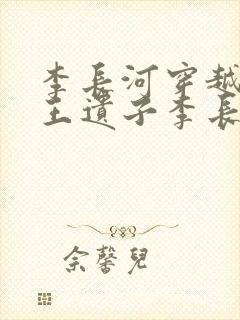 李長河穿越
王遺子李長
佘馨兒